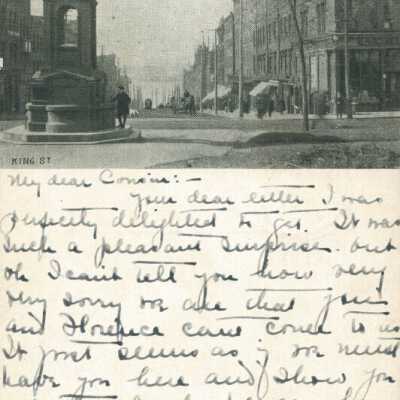 KING ST
My dear Cousin:-
Your dear letter I was
perfectly delighted to get. It was
such a pleasant surprise. but
oh I can't tell you how very
very sorry we are that you
and Florence can't come to us
It just seems as if we must
have you here and show you